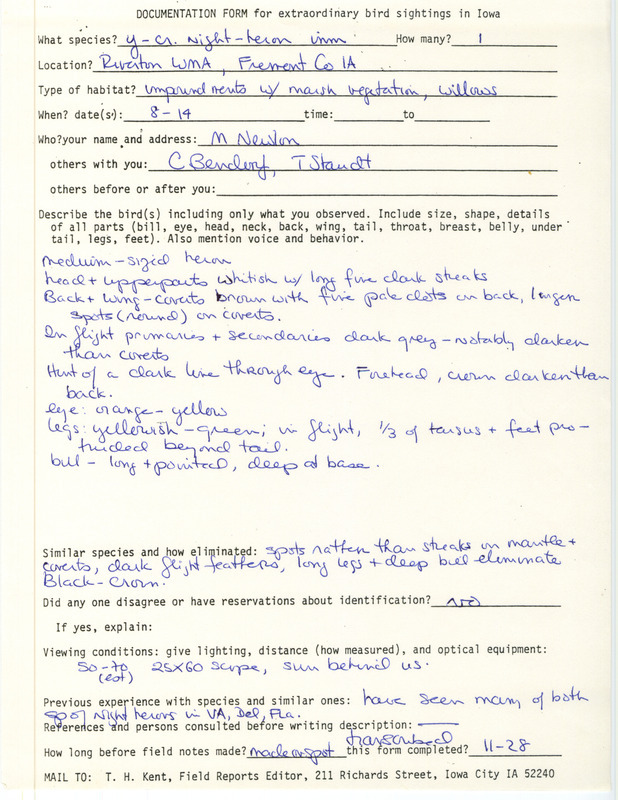 DOCUMENTATION FORM for extraordinary bird sightings in Iowa
What species? Y-cr. Night-heron imm How many? 1
Location? Riverton WMA, Fremont Co IA
Type of habitat? impoundments w/ marsh vegetation, willows
When? date(s): 8-14 time: to
Who? your name and address: M Newlon
others with you: C Bendorf, T Staudt
others before or after you:
Describe the bird(s) including only what you observed. Include size, shape, details
of all parts (bill, eye, head, neck, back, wing, tail, throat, breast, belly, under
tail, legs, feet). Also mention voice and behavior.
medium-sized heron
head + upperparts whitish w/ long fine dark streaks
Back + wing-coverts brown with fine pale dots on back, longer
spots (round) on coverts.
In flight primaries + secondaries dark grey - notably darker
than coverts
Hint of a dark line through eye. Forehead, crown darker than
back.
eye: orange-yellow
legs: yellowish-green; in flight, 1/3 of tarsus + feet pro-
truded beyond tail.
bill - long + pointed, deep at base.
Similar species and how eliminated: spots rather than streaks on mantle +
coverts, dark flight feathers, long legs + deep bill eliminate
Black-Crown.
Did any one disagree or have reservations about identification? no
If yes, explain:
Viewing conditions: give lighting, distance (how measured), and optical equipment:
50-70 25X60 scope, sun behind us.
(est)
Previous experience with species and similar ones: have seen many of both
sp of Night herons in VA, Del, Fla.
References and persons consulted before writing description: —
transcribed
How long before field notes made? made on spot this form completed? 11-28
MAIL TO: T. H. Kent, Field Reports Editor, 211 Richards Street, Iowa City IA 52240